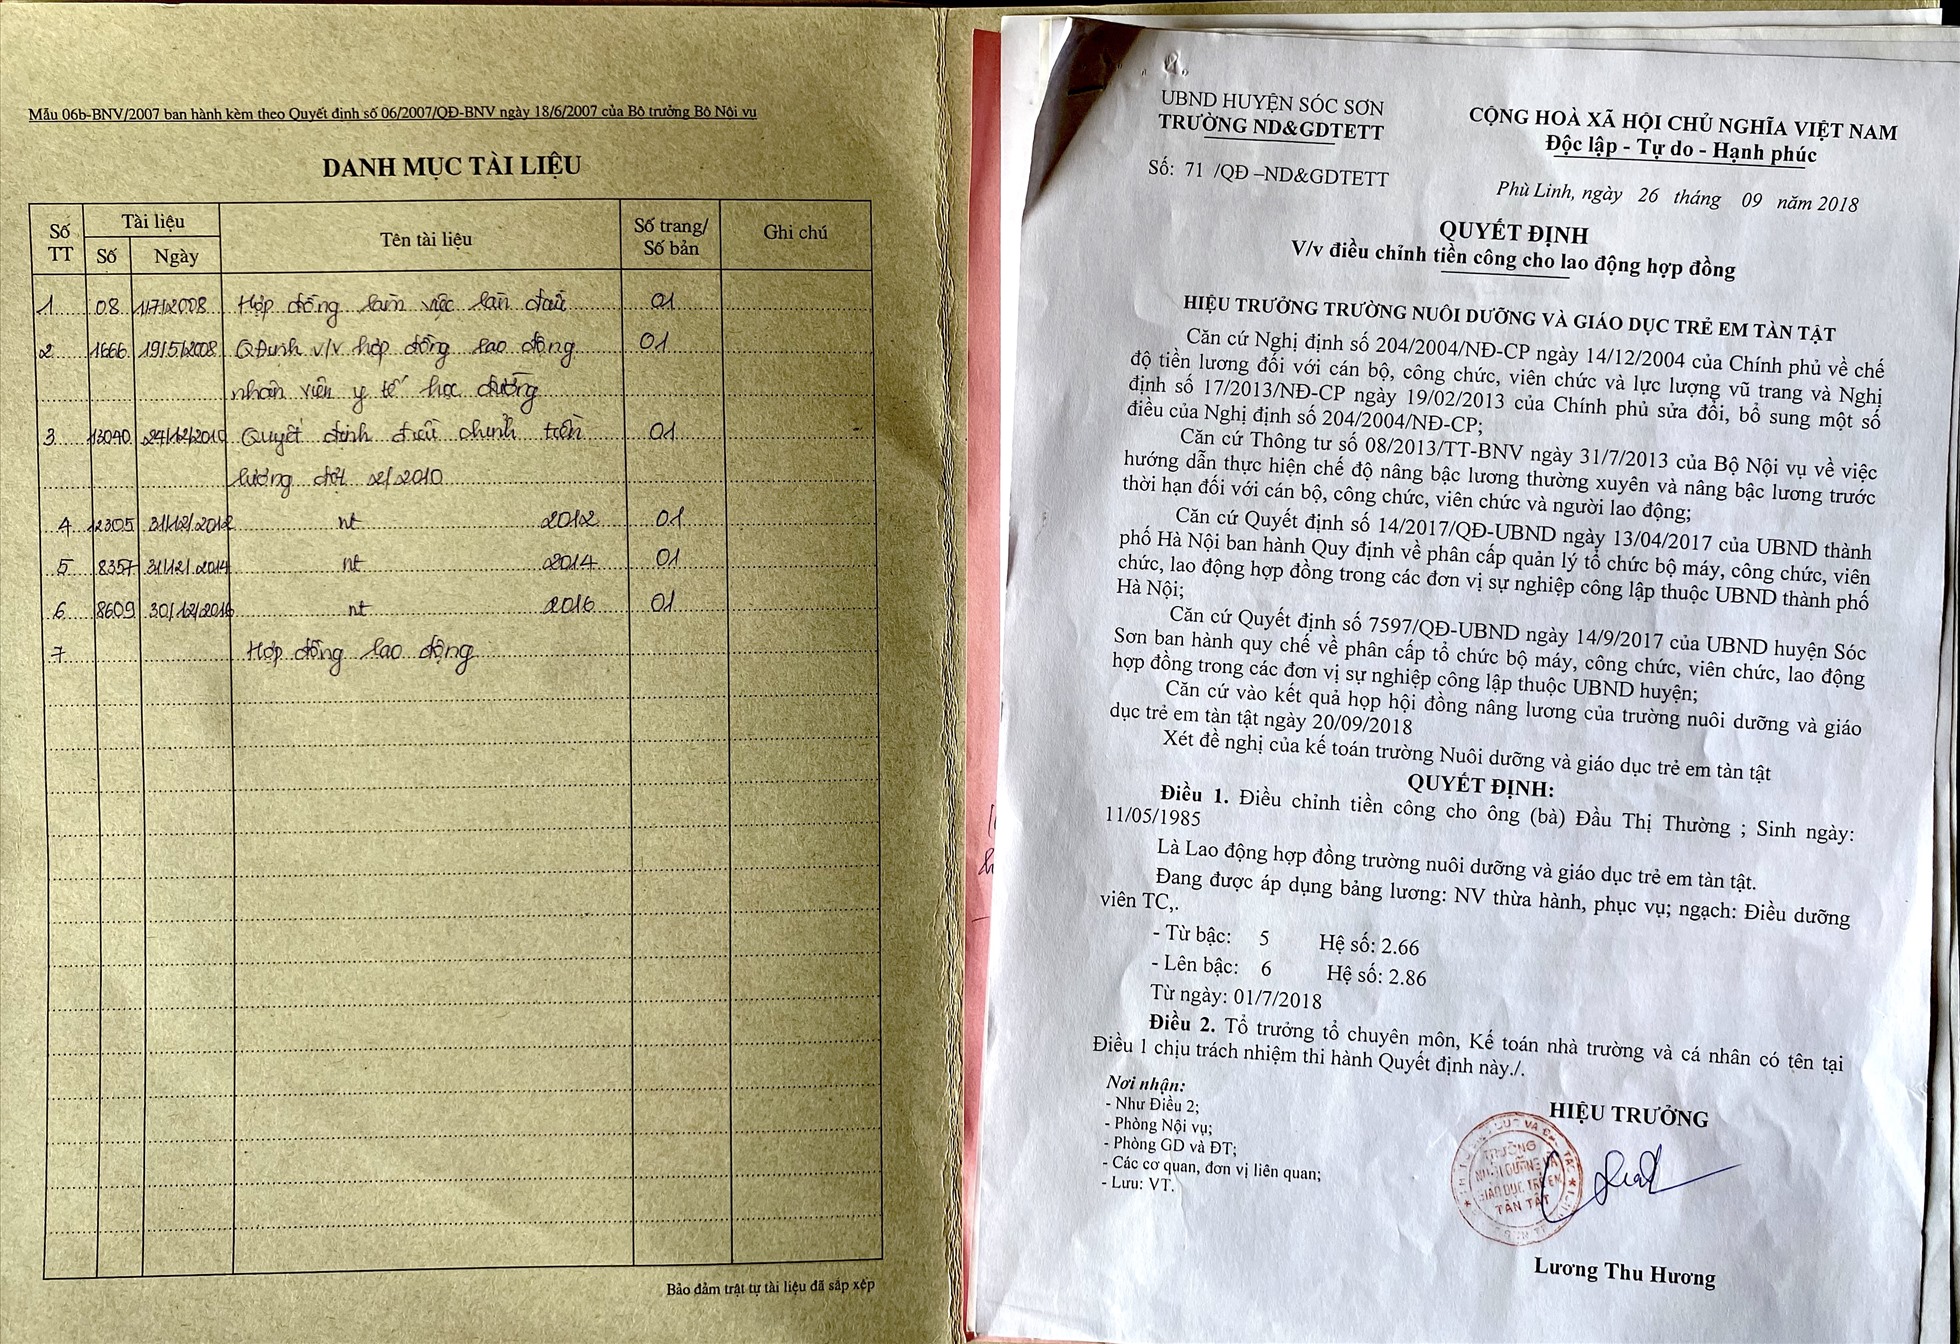 Mẫu 06b-BNV/2007 ban hành kèm theo Quyết định số 06/2007/QĐ-BNV ngày 18/6/2007 của Bộ trưởng Bộ Nội vụ
DANH MỤC TÀI LIỆU
Số TT | Tài liệu | Tên tài liệu | Số trang/ Số bản | Ghi chú
Số | Ngày
1 08 1/7/2008 Hợp đồng làm việc lần đầu 01
2 1666 19/5/2008 QĐịnh v/v hợp đồng lao động 01
nhân viên y tế học đường
3 13040 24/12/2010 Quyết định điều chỉnh tiền 01
lương đợt 2/2010
4 12305 31/12/2012 nt 2012 01
5 8357 31/12/2014 nt 2014 01
6 8609 30/12/2016 nt 2016 01
7 Hợp đồng lao động
Bảo đảm trật tự tài liệu đã sắp xếp
UBND HUYỆN SÓC SƠN
TRƯỜNG ND&GDTETT
Số: 71 /QĐ –ND&GDTETT
CỘNG HOÀ XÃ HỘI CHỦ NGHĨA VIỆT NAM
Độc lập - Tự do - Hạnh phúc
Phù Linh, ngày 26 tháng 09 năm 2018
QUYẾT ĐỊNH
V/v điều chỉnh tiền công cho lao động hợp đồng
HIỆU TRƯỞNG TRƯỜNG NUÔI DƯỠNG VÀ GIÁO DỤC TRẺ EM TÀN TẬT
Căn cứ Nghị định số 204/2004/NĐ-CP ngày 14/12/2004 của Chính phủ về chế
độ tiền lương đối với cán bộ, công chức, viên chức và lực lượng vũ trang và Nghị
định số 17/2013/NĐ-CP ngày 19/02/2013 của Chính phủ sửa đổi, bổ sung một số
điều của Nghị định số 204/2004/NĐ-CP;
Căn cứ Thông tư số 08/2013/TT-BNV ngày 31/7/2013 của Bộ Nội vụ về việc
hướng dẫn thực hiện chế độ nâng bậc lương thường xuyên và nâng bậc lương trước
thời hạn đối với cán bộ, công chức, viên chức và người lao động;
Căn cứ Quyết định số 14/2017/QĐ-UBND ngày 13/04/2017 của UBND thành
phố Hà Nội ban hành Quy định về phân cấp quản lý tổ chức bộ máy, công chức, viên
chức, lao động hợp đồng trong các đơn vị sự nghiệp công lập thuộc UBND thành phố
Hà Nội;
Căn cứ Quyết định số 7597/QĐ-UBND ngày 14/9/2017 của UBND huyện Sóc
Sơn ban hành quy chế về phân cấp tổ chức bộ máy, công chức, viên chức, lao động
hợp đồng trong các đơn vị sự nghiệp công lập thuộc UBND huyện;
Căn cứ vào kết quả họp hội đồng nâng lương của trường nuôi dưỡng và giáo
dục trẻ em tàn tật ngày 20/09/2018
Xét đề nghị của kế toán trường Nuôi dưỡng và giáo dục trẻ em tàn tật
QUYẾT ĐỊNH:
Điều 1. Điều chỉnh tiền công cho ông (bà) Đầu Thị Thường ; Sinh ngày:
11/05/1985
Là Lao động hợp đồng trường nuôi dưỡng và giáo dục trẻ em tàn tật.
Đang được áp dụng bảng lương: NV thừa hành, phục vụ; ngạch: Điều dưỡng
viên TC,.
- Từ bậc: 5 Hệ số: 2.66
- Lên bậc: 6 Hệ số: 2.86
Từ ngày: 01/7/2018
Điều 2. Tổ trưởng tổ chuyên môn, Kế toán nhà trường và cá nhân có tên tại
Điều 1 chịu trách nhiệm thi hành Quyết định này./.
Nơi nhận:
- Như Điều 2;
- Phòng Nội vụ;
- Phòng GD và ĐT;
- Các cơ quan, đơn vị liên quan;
- Lưu: VT.
HIỆU TRƯỞNG
TRƯỜNG
NUÔI DƯỠNG VÀ
GIÁO DỤC TRẺ EM
TÀN TẬT
Lương Thu Hương